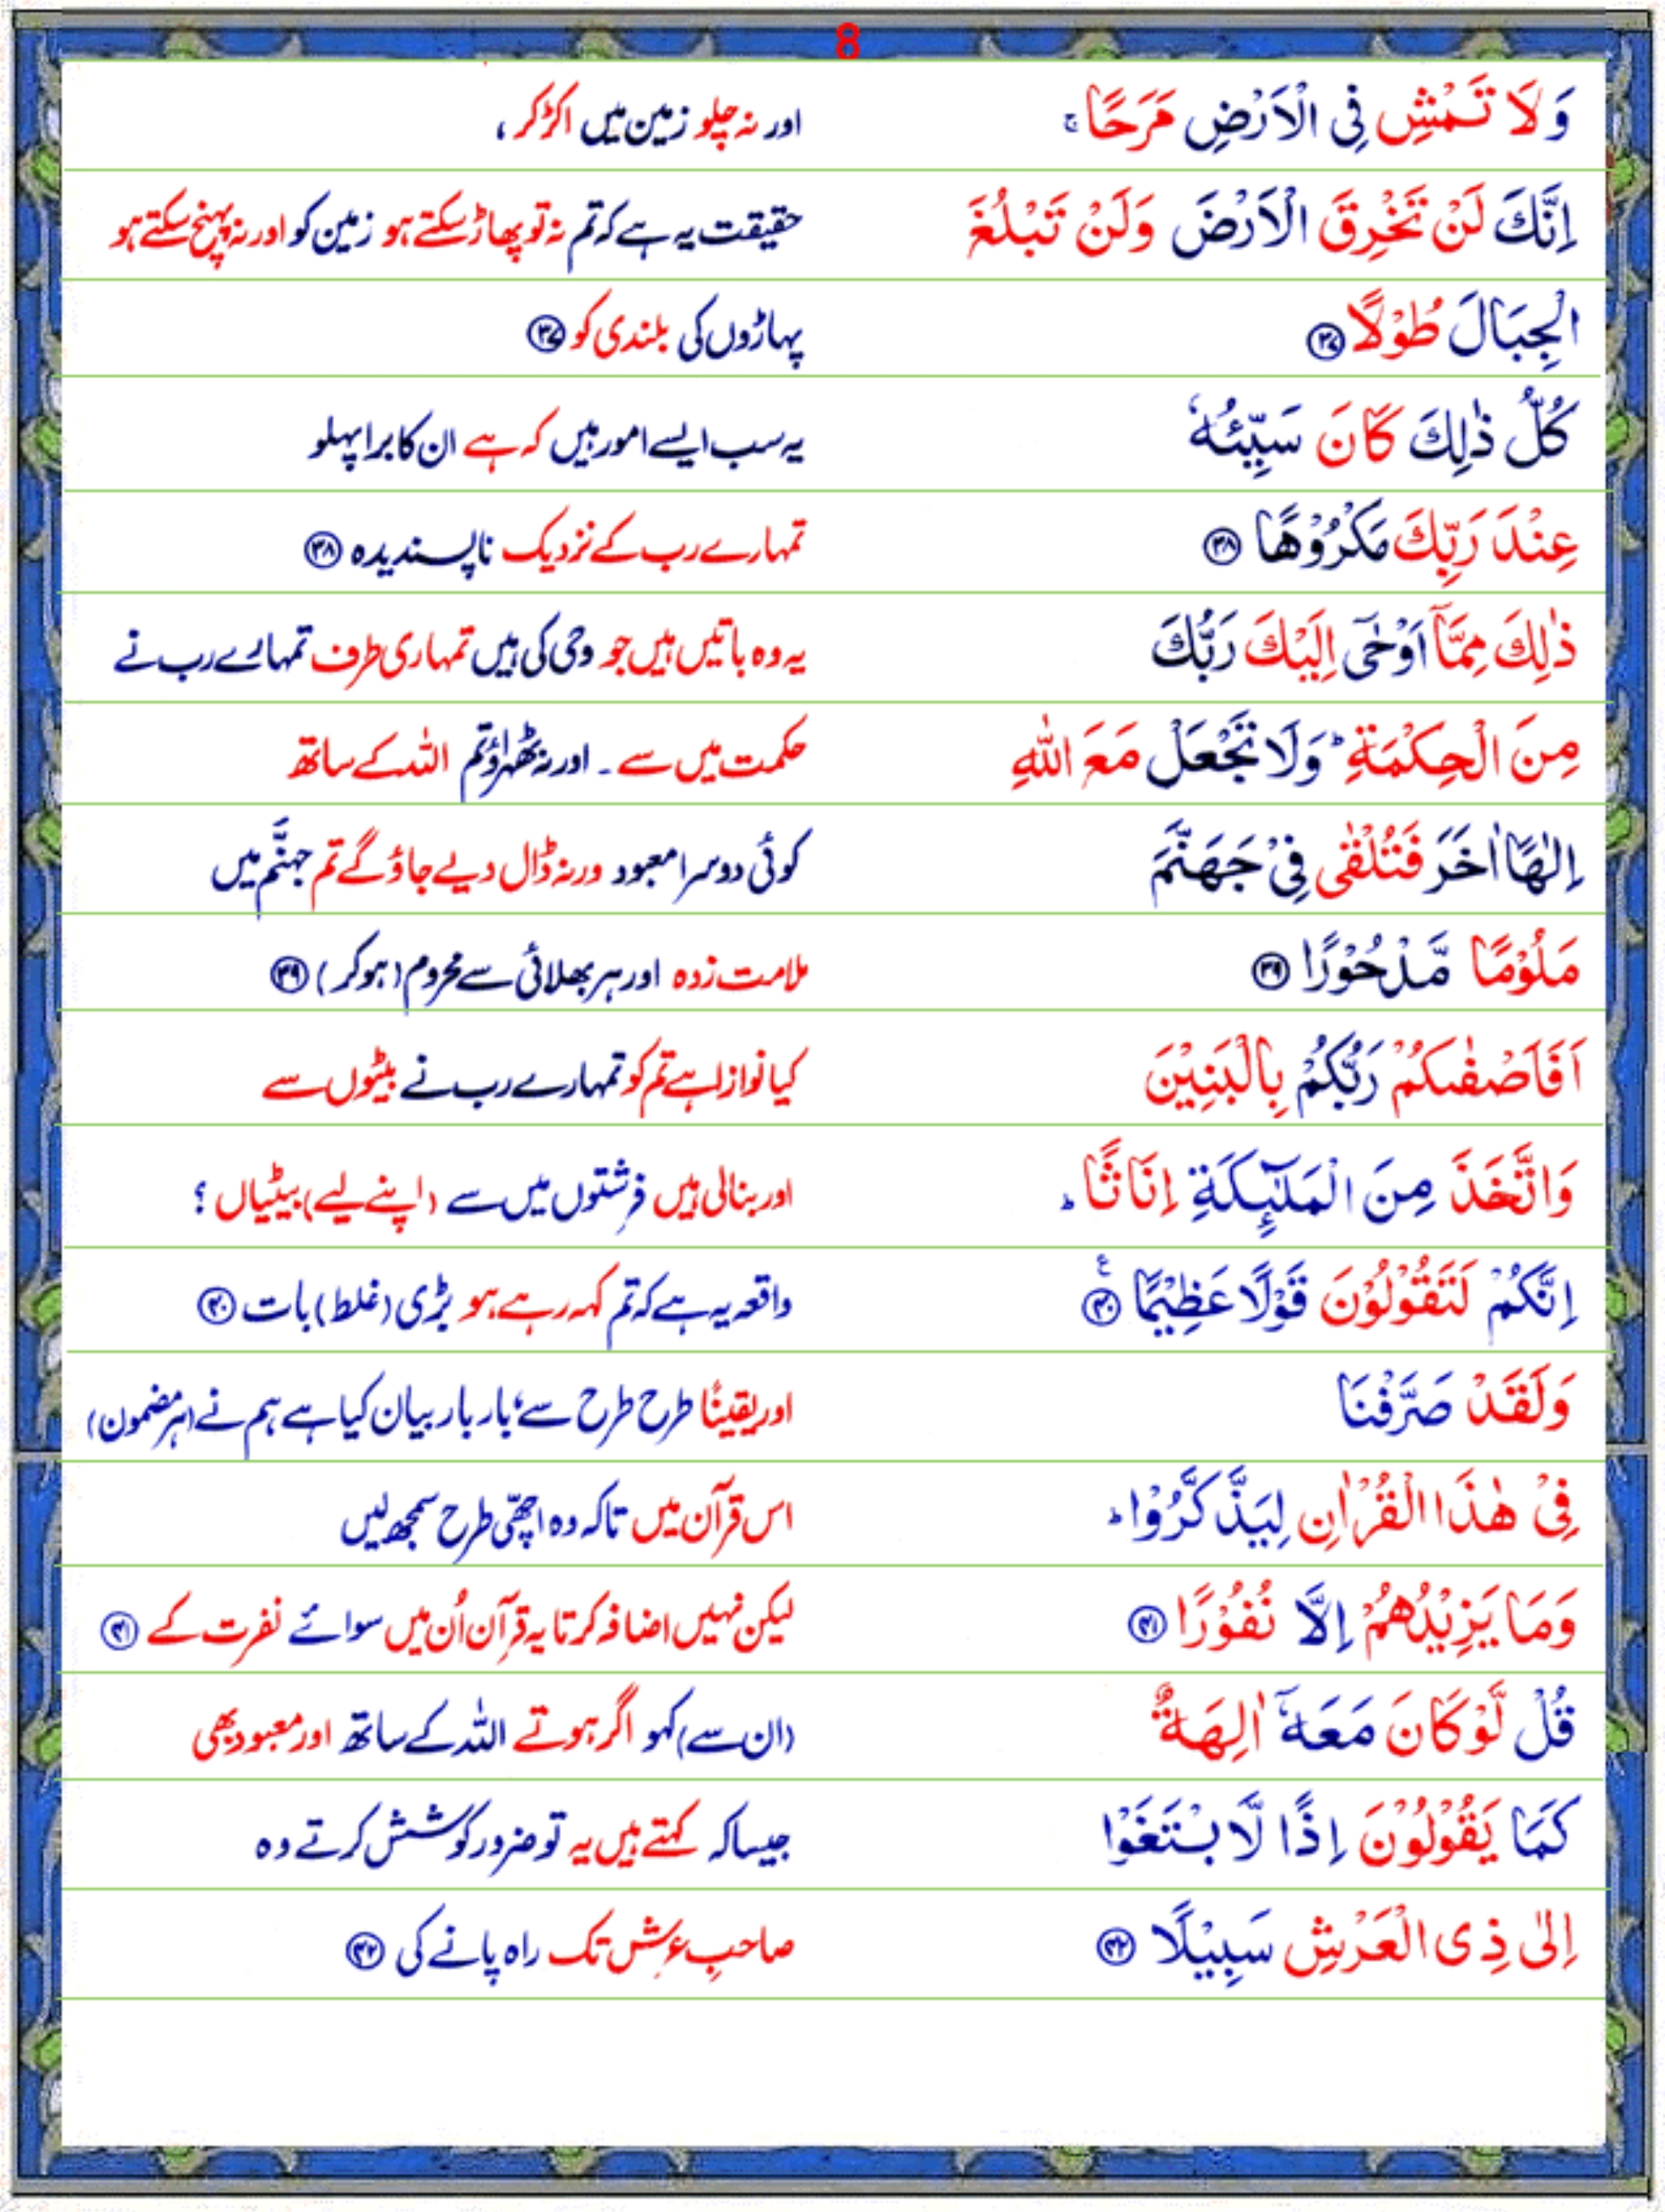 8
وَلَا تَمْشِ فِی الْاَرْضِ مَرَحًا ۚ اور نہ چلو زمین میں اکڑ کر،
اِنَّكَ لَنْ تَخْرِقَ الْاَرْضَ وَلَنْ تَبْلُغَ حقیقت یہ ہے کہ تم نہ تو پھاڑ سکتے ہو زمین کو اور نہ پہنچ سکتے ہو
الْجِبَالَ طُوْلًا ﴿۳۷﴾ پہاڑوں کی بلندی کو ﴿۳۷﴾
كُلُّ ذٰلِكَ كَانَ سَیِّئُهٗ یہ سب ایسے امور ہیں کہ ہے ان کا برا پہلو
عِنْدَ رَبِّكَ مَكْرُوْهًا ﴿۳۸﴾ تمہارے رب کے نزدیک ناپسندیدہ ﴿۳۸﴾
ذٰلِكَ مِمَّاۤ اَوْحٰۤی اِلَیْكَ رَبُّكَ یہ وہ باتیں ہیں جو وحی کی ہیں تمہاری طرف تمہارے رب نے
مِنَ الْحِكْمَةِ ؕ وَلَا تَجْعَلْ مَعَ اللّٰهِ حکمت میں سے ۔ اور نہ ٹھہراؤ تم اللہ کے ساتھ
اِلٰهًا اٰخَرَ فَتُلْقٰی فِیْ جَهَنَّمَ کوئی دوسرا معبود ورنہ ڈال دیے جاؤ گے تم جہنَّم میں
مَلُوْمًا مَّدْحُوْرًا ﴿۳۹﴾ ملامت زدہ اور ہر بھلائی سے محروم (ہو کر) ﴿۳۹﴾
اَفَاَصْفٰىكُمْ رَبُّكُمْ بِالْبَنِیْنَ کیا نوازا ہے تم کو تمہارے رب نے بیٹوں سے
وَاتَّخَذَ مِنَ الْمَلٰٓىِٕكَةِ اِنَاثًا ؕ اور بنالی ہیں فرشتوں میں سے (اپنے لیے) بیٹیاں ؟
اِنَّكُمْ لَتَقُوْلُوْنَ قَوْلًا عَظِیْمًا ﴿۴۰﴾ ع واقعہ یہ ہے کہ تم کہہ رہے ہو بڑی (غلط) بات ﴿۴۰﴾
وَلَقَدْ صَرَّفْنَا اور یقیناً طرح طرح سے، بار بار بیان کیا ہے ہم نے (ہر مضمون)
فِیْ هٰذَا الْقُرْاٰنِ لِیَذَّكَّرُوْا ؕ اس قرآن میں تاکہ وہ اچھّی طرح سمجھ لیں
وَمَا یَزِیْدُهُمْ اِلَّا نُفُوْرًا ﴿۴۱﴾ لیکن نہیں اضافہ کرتا یہ قرآن اُن میں سوائے نفرت کے ﴿۴۱﴾
قُلْ لَّوْ كَانَ مَعَهٗۤ اٰلِهَةٌ (ان سے) کہو اگر ہوتے اللہ کے ساتھ اور معبود بھی
كَمَا یَقُوْلُوْنَ اِذًا لَّابْتَغَوْا جیسا کہ کہتے ہیں یہ تو ضرور کوشش کرتے وہ
اِلٰی ذِی الْعَرْشِ سَبِیْلًا ﴿۴۲﴾ صاحبِ عرش تک راہ پانے کی ﴿۴۲﴾